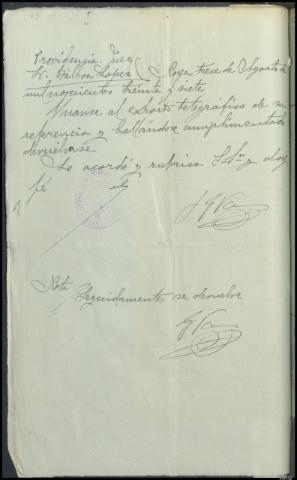 Providencia Juez
Sr. Balboa Lopez
Roya trece de Agosto de
mil novecientos treinta y siete
Unanse al exhorto telegráfico de su
referencia y hallándose cumplimentado
devuélvase
Lo acordó y rubrica S.Sª. y doy
fé
Nota
Seguidamente se devuelve